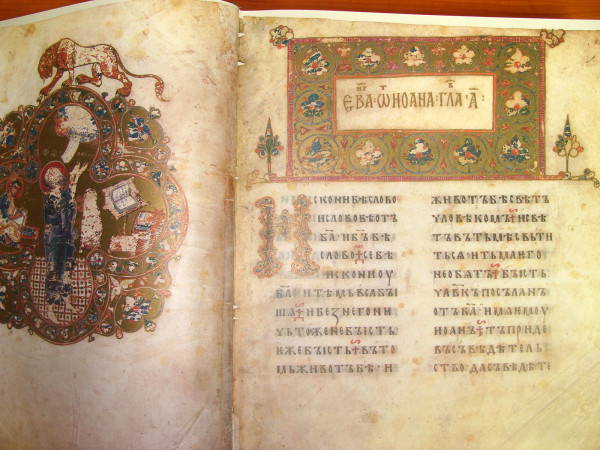 ЕВА·Ѿ ИОАНА·ГЛА·А҃:
ИСКОНИ БѢ СЛОВО
И СЛОВО БѢ ОТЪ
Б҃А И Б҃Ъ БѢ
СЛОВО СЕ БѢ
ИСКОНИ ОУ
Б҃А И ТѢМЬ ВЬСА БЫ
ШѦ И БЕЖ НЕГО НИ
ЧЬТОЖЕ НЕ БЫСТЬ
ѤЖЕ БЫСТЬ ВЪ ТО
МЬ ЖИВОТЪ БѢ И
ЖИВОТЪ БѢ СВѢТЪ
ЧЛОВѢКОМЪ И СВѢ
ТЪ ВЪ ТЬМѢ СВЬТИ
ТЬСѦ И ТЬМА ѤГО
НЕ ОБѦТЪ БЫСТЬ
ЧЛ҃ВКЪ ПОСЪЛАНЪ
ОТЪ Б҃А ИМѦ ѤМОУ
ИОАНЪ ТЪ ПРИДЕ
ВЪ СЪВѢДѢТЕЛЬ
СТВО ДА СЪВѢДѢТЕ